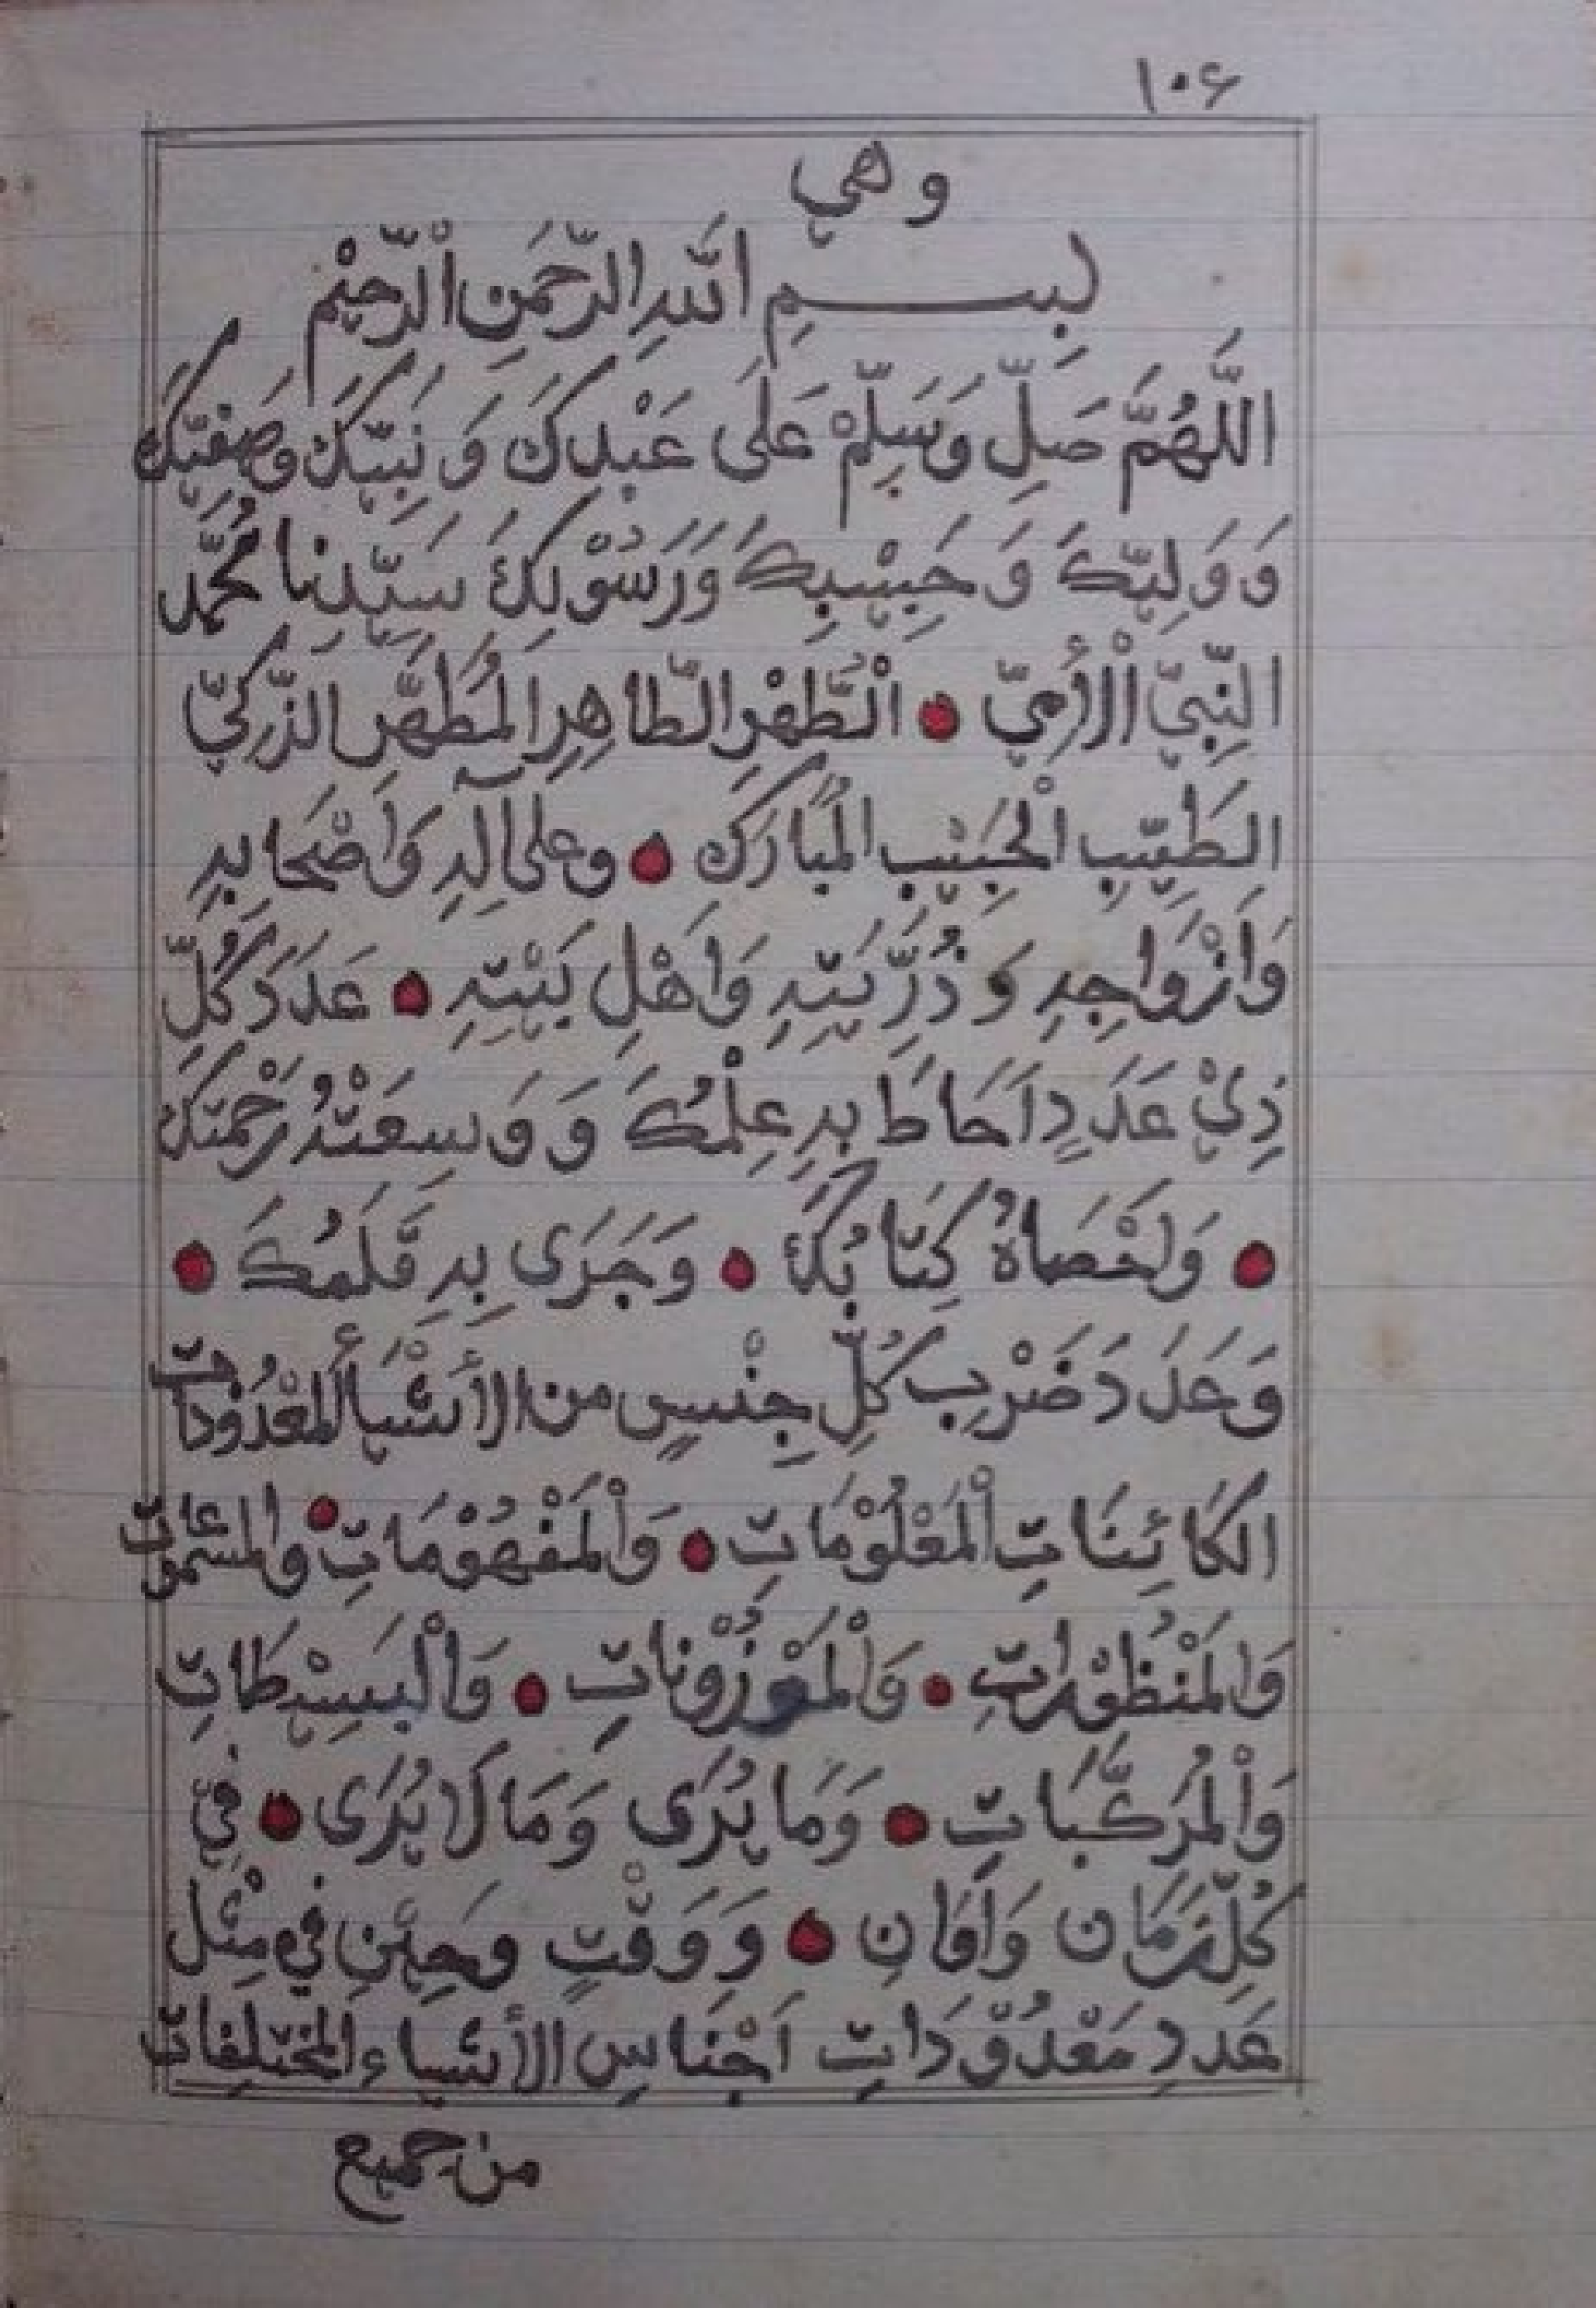 ١٠٤
وهي
بِسمِ اللَّهِ الرَّحْمَنِ الْرَّحِيْمِ
اللَّهُمَّ صَلِّ وَسَلِّمْ عَلَى عَبْدِكَ وَ نَبِيِّكَ وَصَفِيِّكَ
وَ وَلِيِّكَ وَ حَبِيْبِكَ وَرَسُوْلِكَ سَيِّدِنا مُحَمَّد
النَّبِيِّ الْأُمِّيِّ ● الْطُّهْرِ الطَّاهِرِ المُطَهَّرِ الزَّكِيِّ
الطَيِّبِ الْحَبِيْبِ المُبَارَكِ ● وعلى آلِهِ وَاَصْحَابِهِ
وَاَزْوَاجِهِ وَ ذُرِّيَّتِهِ وَاَهْلِ بَيْتِهِ ● عَدَدَ كُلِّ
ذِيْ عَدَدٍ اَحَاطَ بِهِ عِلْمُكَ وَ وَسِعَتْهُ رَحْمَتُكَ
● وَاَحْصَاهُ كِتَابُكَ ● وَجَرَى بِهِ قَلَمُكَ ●
وَعَدَدَ ضَرْبِ كُلِّ جِنْسٍ من الأَشْيَأ الْمَعْدُوْدَاتِ
الكَائِنَاتِ الْمَعْلُوْمَاتِ ● وَالْمَفْهُوْمَاتِ ● والمسموعات
وَالمَنْظُوْرَاتِ ● وَالْمَوْزُوْنَاتِ ● وَالْبَسِيْطَاتِ
وَالْمُرَكَّبَاتِ ● وَمَا يُرَى وَمَا لَا يُرَى ● فِيْ
كُلِّ زَمَان وَاَوَانِ ● وَ وَقْتٍ وَحِيْنٍ فِي مِثْل
عَدَدِ مَعْدُوْدَاتِ اَجْنَاسِ الأَشيَاءِ المختلِفاتِ
من جميع